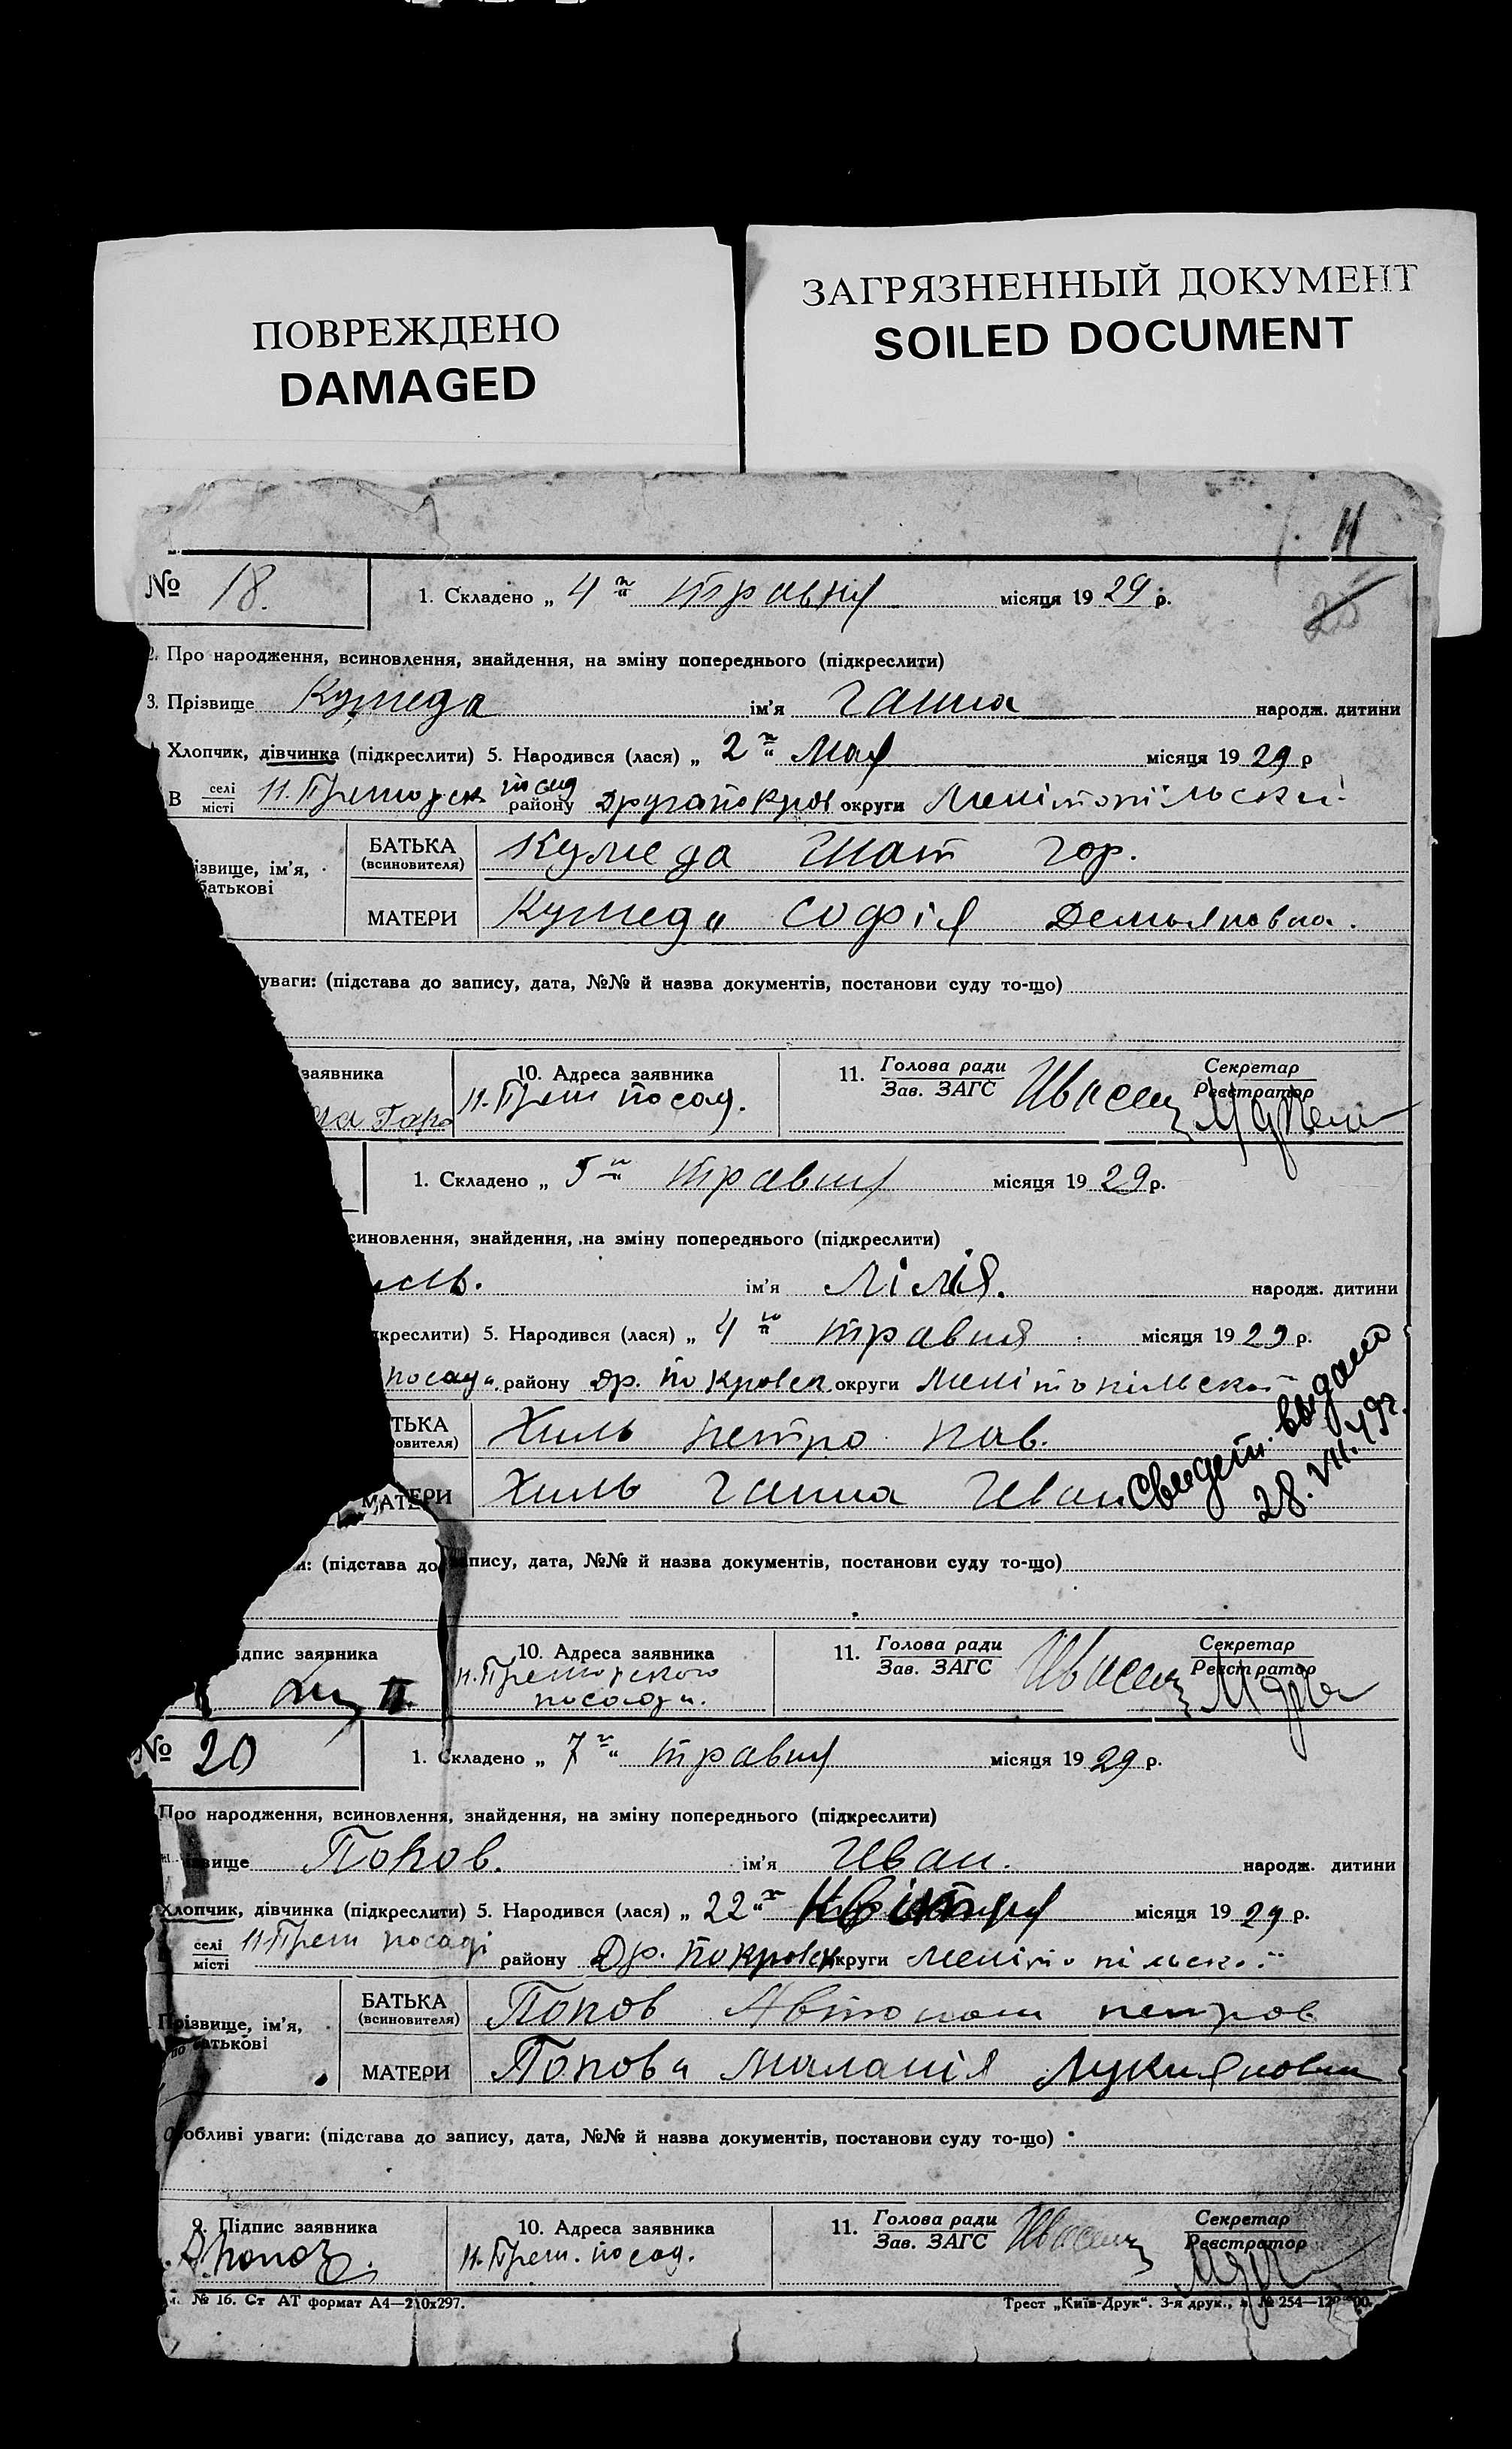 ПОВРЕЖДЕНО
DAMAGED
ЗАГРЯЗНЕННЫЙ ДОКУМЕНТ
SOILED DOCUMENT
11
25
№ 18. 1. Складено „ 4 го “ травня місяця 19 29 р.
2. Про народження, всиновлення, знайдення, на зміну попереднього (підкреслити)
3. Прізвище Кумеда ім’я Ганна народж. дитини
Хлопчик, дівчинка (підкреслити) 5. Народився (лася) „ 2 го “ Мая місяця 19 29 р
В селі місті посад району округи Мелітопільской
БАТЬКА (всиновителя) Кумеда Гнат Гор.
ізвище, ім’я, батькові
МАТЕРИ Кумеда Софія Демьяновна.
уваги: (підстава до запису, дата, №№ й назва документів, постанови суду то-що)
заявника 10. Адреса заявника 11. Голова ради Зав. ЗАГС Секретар Реєстратор
Н.-Прем посад.
1. Складено „ 5 го “ травня місяця 19 29 р.
синовлення, знайдення, на зміну попереднього (підкреслити)
ль. ім’я Лілія. народж. дитини
дкреслити) 5. Народився (лася) „ 4 го “ травня місяця 19 29 р.
посада району Др. Покровск округи Мелітопільской
ТЬКА овителя) Хиль Петро Пав.
МАТЕРИ Хиль Ганна Иван
Свидет. выдано
28. VII. 49г.
и: (підстава до запису, дата, №№ й назва документів, постанови суду то-що)
ідпис заявника 10. Адреса заявника 11. Голова ради Зав. ЗАГС Секретар Реєстратор
П. посади.
№ 20 1. Складено „ 7 го “ травня місяця 19 29 р.
Про народження, всиновлення, знайдення, на зміну попереднього (підкреслити)
звище Попов. ім’я Иван. народж. дитини
Хлопчик, дівчинка (підкреслити) 5. Народився (лася) „ 22 го “ Квітня місяця 19 29 р.
селі місті Н-Прем посаді району Др. Покровск округи Мелітопільскої
БАТЬКА (всиновителя) Попов Автоном Петров
Прізвище, ім’я, по батькові
МАТЕРИ Попова Маланія Лукияновна
Особливі уваги: (підстава до запису, дата, №№ й назва документів, постанови суду то-що)
9. Підпис заявника 10. Адреса заявника 11. Голова ради Зав. ЗАГС Секретар Реєстратор
А. Попов Н.-Прем. посад.
№ 16. Ст АТ формат А4—210х297. Трест „Київ-Друк“. 3-я друк.,